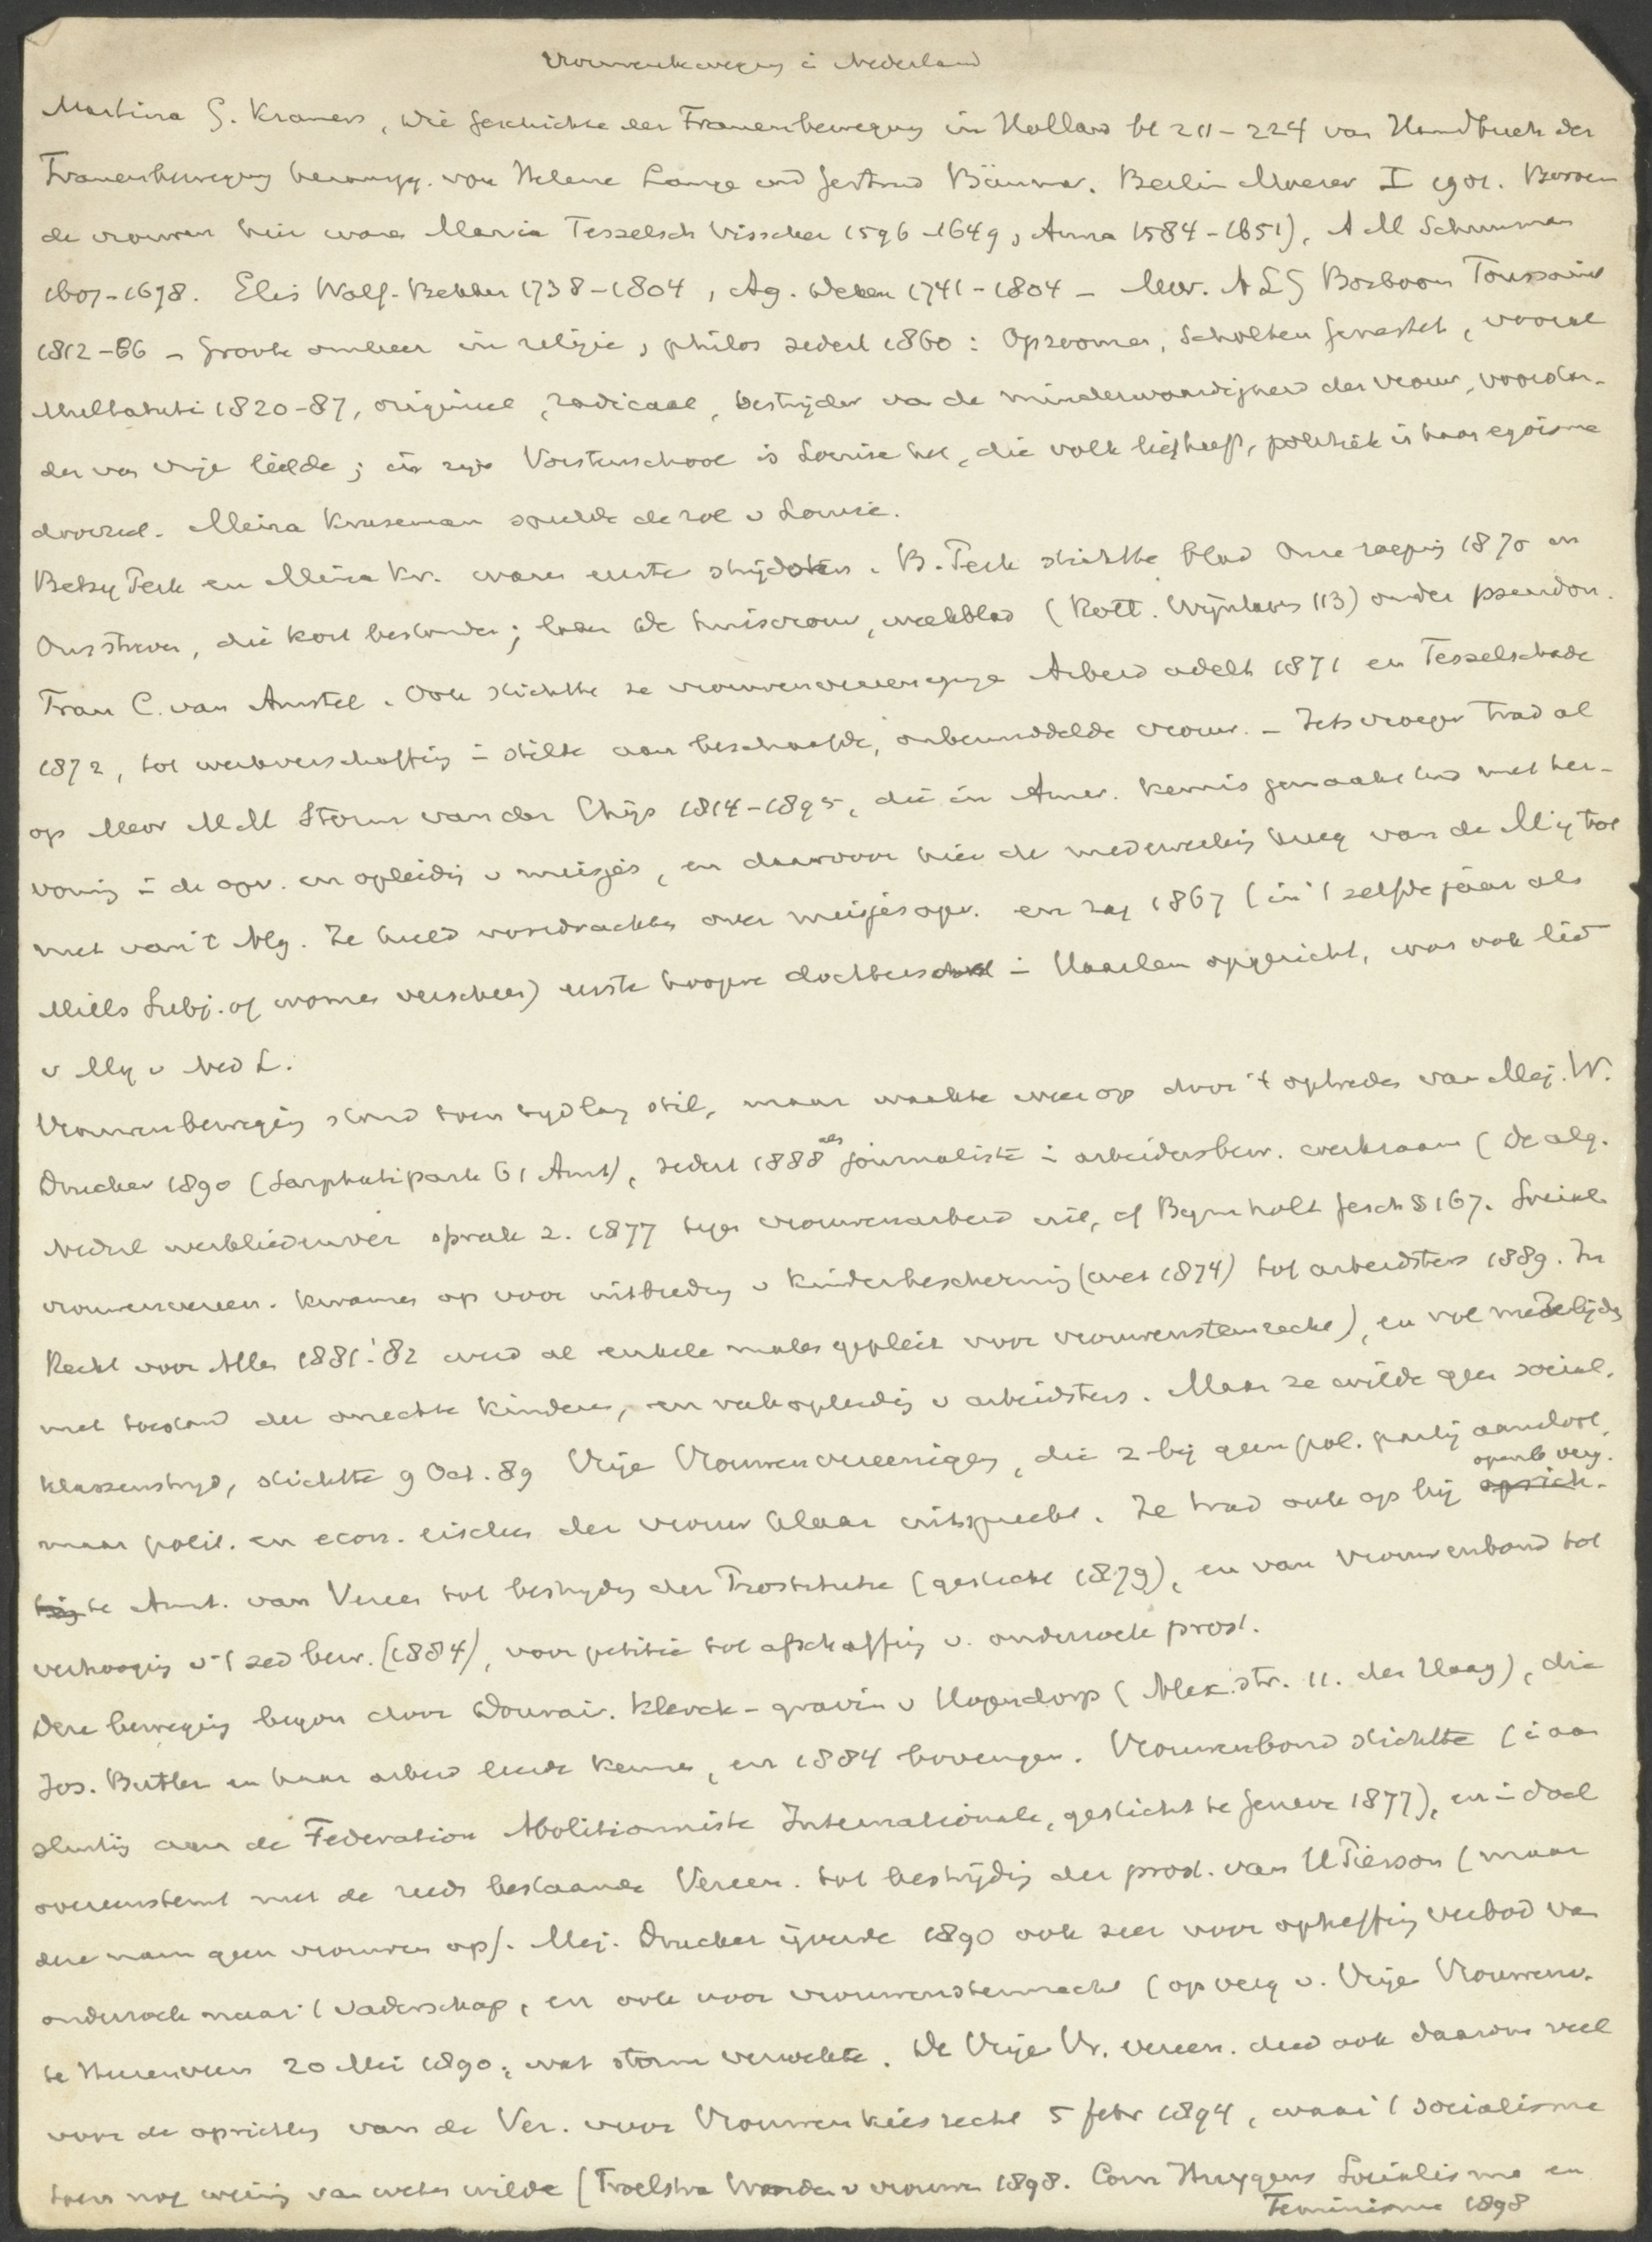 Vrouwenbeweging in Nederland
Martina G. Kramers, Die Geschichte der Frauenbewegung in Holland bl 211-224 van Handbuch der
Frauenbewegung herausgg. von Helene Lange und Gertrud Bäumer. Berlin Moeser I 1901. Boven
de vrouwen hier waren Maria Tesselsch Visscher 1596-1649, Anna 1584-1651), A M Schuurman
1607-1678. Elis Wolf-Bekker 1738-1804, Ag. Deken 1741-1804 - Mevr. A L G Bosboom Toussaint
1812-86 - Groote omkeer in religie, philos sedert 1860: Opzoomer, Scholten Genestet, vooral
Multatuli 1820-87, origineel, radicaal, bestrijder van de minderwaardigheid der vrouw, voorstan-
der van vrije liefde; in zijn Vorstenschool is Louise het, die volk liefheeft, politiek in haar egoisme
doorziet. Mina Kruseman speelde de rol v Louise.
Betsy Perk en Mina Kr. waren eerste strijdsters. B. Perk stichtte blad Onze roeping 1870 en
Ons streven, die kort bestonden; later De huisvrouw, weekblad (Rott. Wijnhaven 113) onder pseudon.
Frau C. van Amstel. Ook stichtte ze vrouwenvereeniging Arbeid adelt 1871 en Tesselschade
1872, tot werkverschaffing in stilte aan beschaafde, onbemiddelde vrouw. - Iets vroeger trad al
op Mevr M M Storm van der Chijs 1814-1895, die in Amer. kennis gemaakt had met her-
vorming in de opv. en opleiding v meisjes, en daarvoor hier de medewerking kreeg van de Mij tot
nut van 't Alg. Ze hield voordrachten over meisjesopv. en zag 1867 (in 't zelfde jaar als
Mills Subj. of women verscheen) eerste hoogere dochterschool in Haarlem opgericht, was ook lid
v Mij v Ned L.
Vrouwenbeweging stond toen tijdlang stil, maar waakte weer op door 't optreden van Mej. W.
Drucker 1890 (Sarphatipark 61 Amst), sedert 1888 als journaliste in arbeidersbew. werkzaam (De alg.
Nederl werkliedenver sprak z. 1877 tegen vrouwenarbeid uit, cf Bymholt Gesch § 167. Sociale
vrouwenvereen. kwamen op voor uitbreiding v kinderbescherming (wet 1874) tot arbeidsters 1889. In
Recht voor Allen 1881-'82 werd al enkele malen gepleit voor vrouwenstemrecht), en vol medelijden
met toestand der onechte kinderen, en vakopleiding v arbeidsters. Maar ze wilde geen social.
klassenstrijd, stichtte 9 Oct. 89 Vrije Vrouwenvereeniging, die z. bij geen pol. partij aansloot,
maar polit. en econ. eischen der vrouw klaar uitspreekt. Ze trad ook op bij openb verg.
te Amst. van Vereen tot bestrijding der Prostitutie (gesticht 1879), en van Vrouwenbond tot
verhooging v 't zed bew. (1884), voor petitie tot afschaffing v. onderzoek prost.
Deze beweging begon door Douair. Klerck - gravin v Hogendorp (Alex. str. 11. den Haag), die
Jos. Butler en haar arbeid leerde kennen, en 1884 bovengen. Vrouwenbond stichtte (in aan
sluiting aan de Federation Abolitionniste Internationale, gesticht te Geneve 1877), en in doel
overeenstemt met de reeds bestaande Vereen. tot bestrijding der prost. van H Pierson (maar
deze nam geen vrouwen op). Mej. Drucker ijverde 1890 ook zeer voor opheffing verbod van
onderzoek naar 't vaderschap, en ook voor vrouwenstemrecht (op verg v. Vrije Vrouwenv.
te Heerenveen 20 Mei 1890, wat storm verwekte. De Vrije Vr. vereen. deed ook daarom veel
voor de oprichting van de Ver. voor Vrouwenkiesrecht 5 febr 1894, waar 't socialisme
toen nog weinig van weten wilde (Troelstra Woorden v vrouwen 1898. Corn Huygens Socialisme en
Feminisme 1898